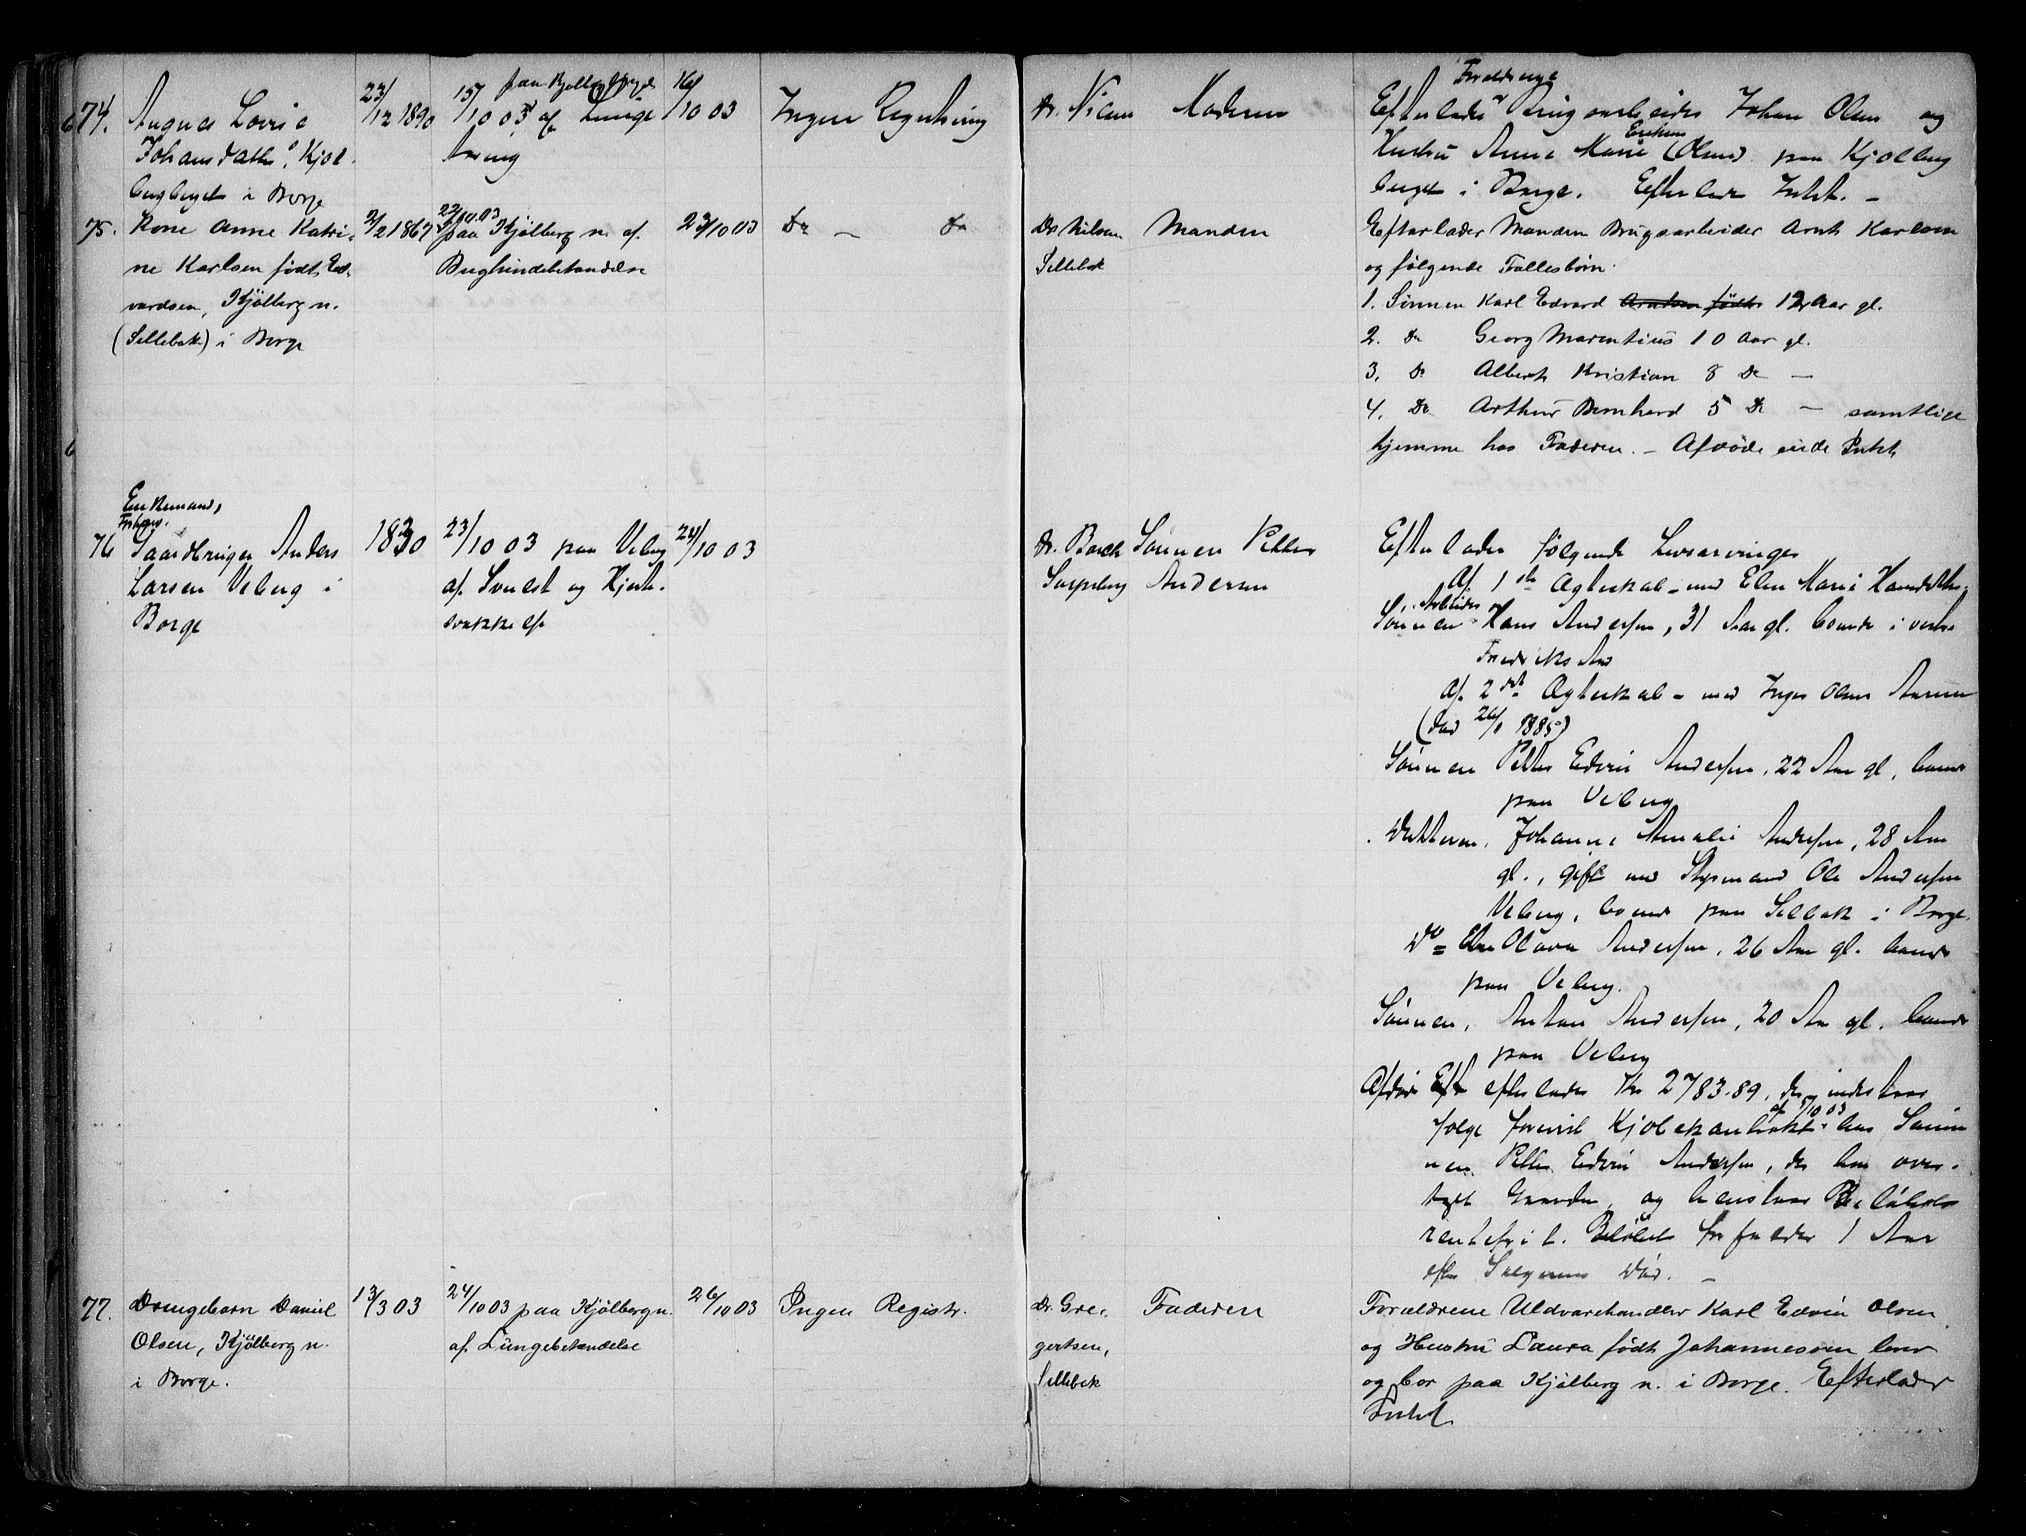 74. Agnes Lovise
Johansdatter, Kjøl-
bergberget i Borge
23/12 1890
15/10 03 paa Kjølbergberget
af Lunge
tæring
16/10 03
Ingen Registrering
Dr. Nilsen
Moderen
Efterlader Forældrene Brugsarbeider Johan Olsen og
Hustru Anne Marie Eriksen (Olsen) paa Kjølberg
berget i Borge. Efterlader Intet. –
75. Kone Anne Katri-
ne Karlsen født Ed-
vardsen, Kjølberg n.
(Sellebak) i Borge
2/2 1867
22/10.03
paa Kjølberg n. af
Bughindebetændelse
23/10 03
Do – Do
Dr Nilsen
Sellebak
Manden
Efterlader Manden Brugsarbeider Arnt Karlsen
og følgende Fællesbørn.
1. Sønnen Karl Edvard Arntsen født 12 Aar gl.
2. Do Georg Marentius 10 Aar gl.
3. Do Albert Kristian 8 Do –
4. Do Arthur Bernhard 5 Do – samtlige
hjemme hos Faderen. – Afdøde eiede Intet
76 Enkemand,
Forhens.
Gaardbruger Anders
Larsen Veberg i
Borge
1830
23/10 03 paa Veberg
af Svulst og Hjerte-
svækkelse
24/10 03
Dr. Borch
Sarpsborg
Sønnen Petter
Andersen
Efterlader følgende Livsarvinger
Af 1ste Ægteskab – med Elen Marie Hansdatter
Sønnen Arbeider Hans Andersen, 31 Aar gl. boende i vestre
Fredrikstad
Af 2det Ægteskab – med Inger Oline Aarum
(død 26/1 1885)
Sønnen Petter Edvin Andersen, 22 Aar gl, boende
paa Veberg
Datteren, Johanne Amalie Andersen, 28 Aar
gl., gift med Styrmand Ole Andersen
Veberg, boende paa Sellebak i Borge.
Do = Olava Andersen, 26 Aar gl. boende
paa Veberg.
Sønnen, Anton Andersen, 20 Aar gl. boende
paa Veberg
Afdøde efterlader Kr 2783.89, der indestaar
følge forevist Kjøbekontrakt af /10 03 hos Søn-
nen Petter Edvin Andersen, der har over-
taget Gaarden, og henstaar Beløbet
rentefrit. Beløbet forfalder 1 Aar
efter Sælgerens Død. –
77. Drengebarn Daniel
Olsen, Kjølberg n.
i Borge.
13/3 03
24/10 03 paa Kjølberg n.
af Lungebetændelse
26/10 03
Ingen Registr.
Dr. Gre-
gertsen,
Sellebak
Faderen
Forældrene Uldvarehandler Karl Edvin Olsen
og Hustru Laura født Johannessen lever
og bor paa Kjølberg n. i Borge. Efterlader
Intet